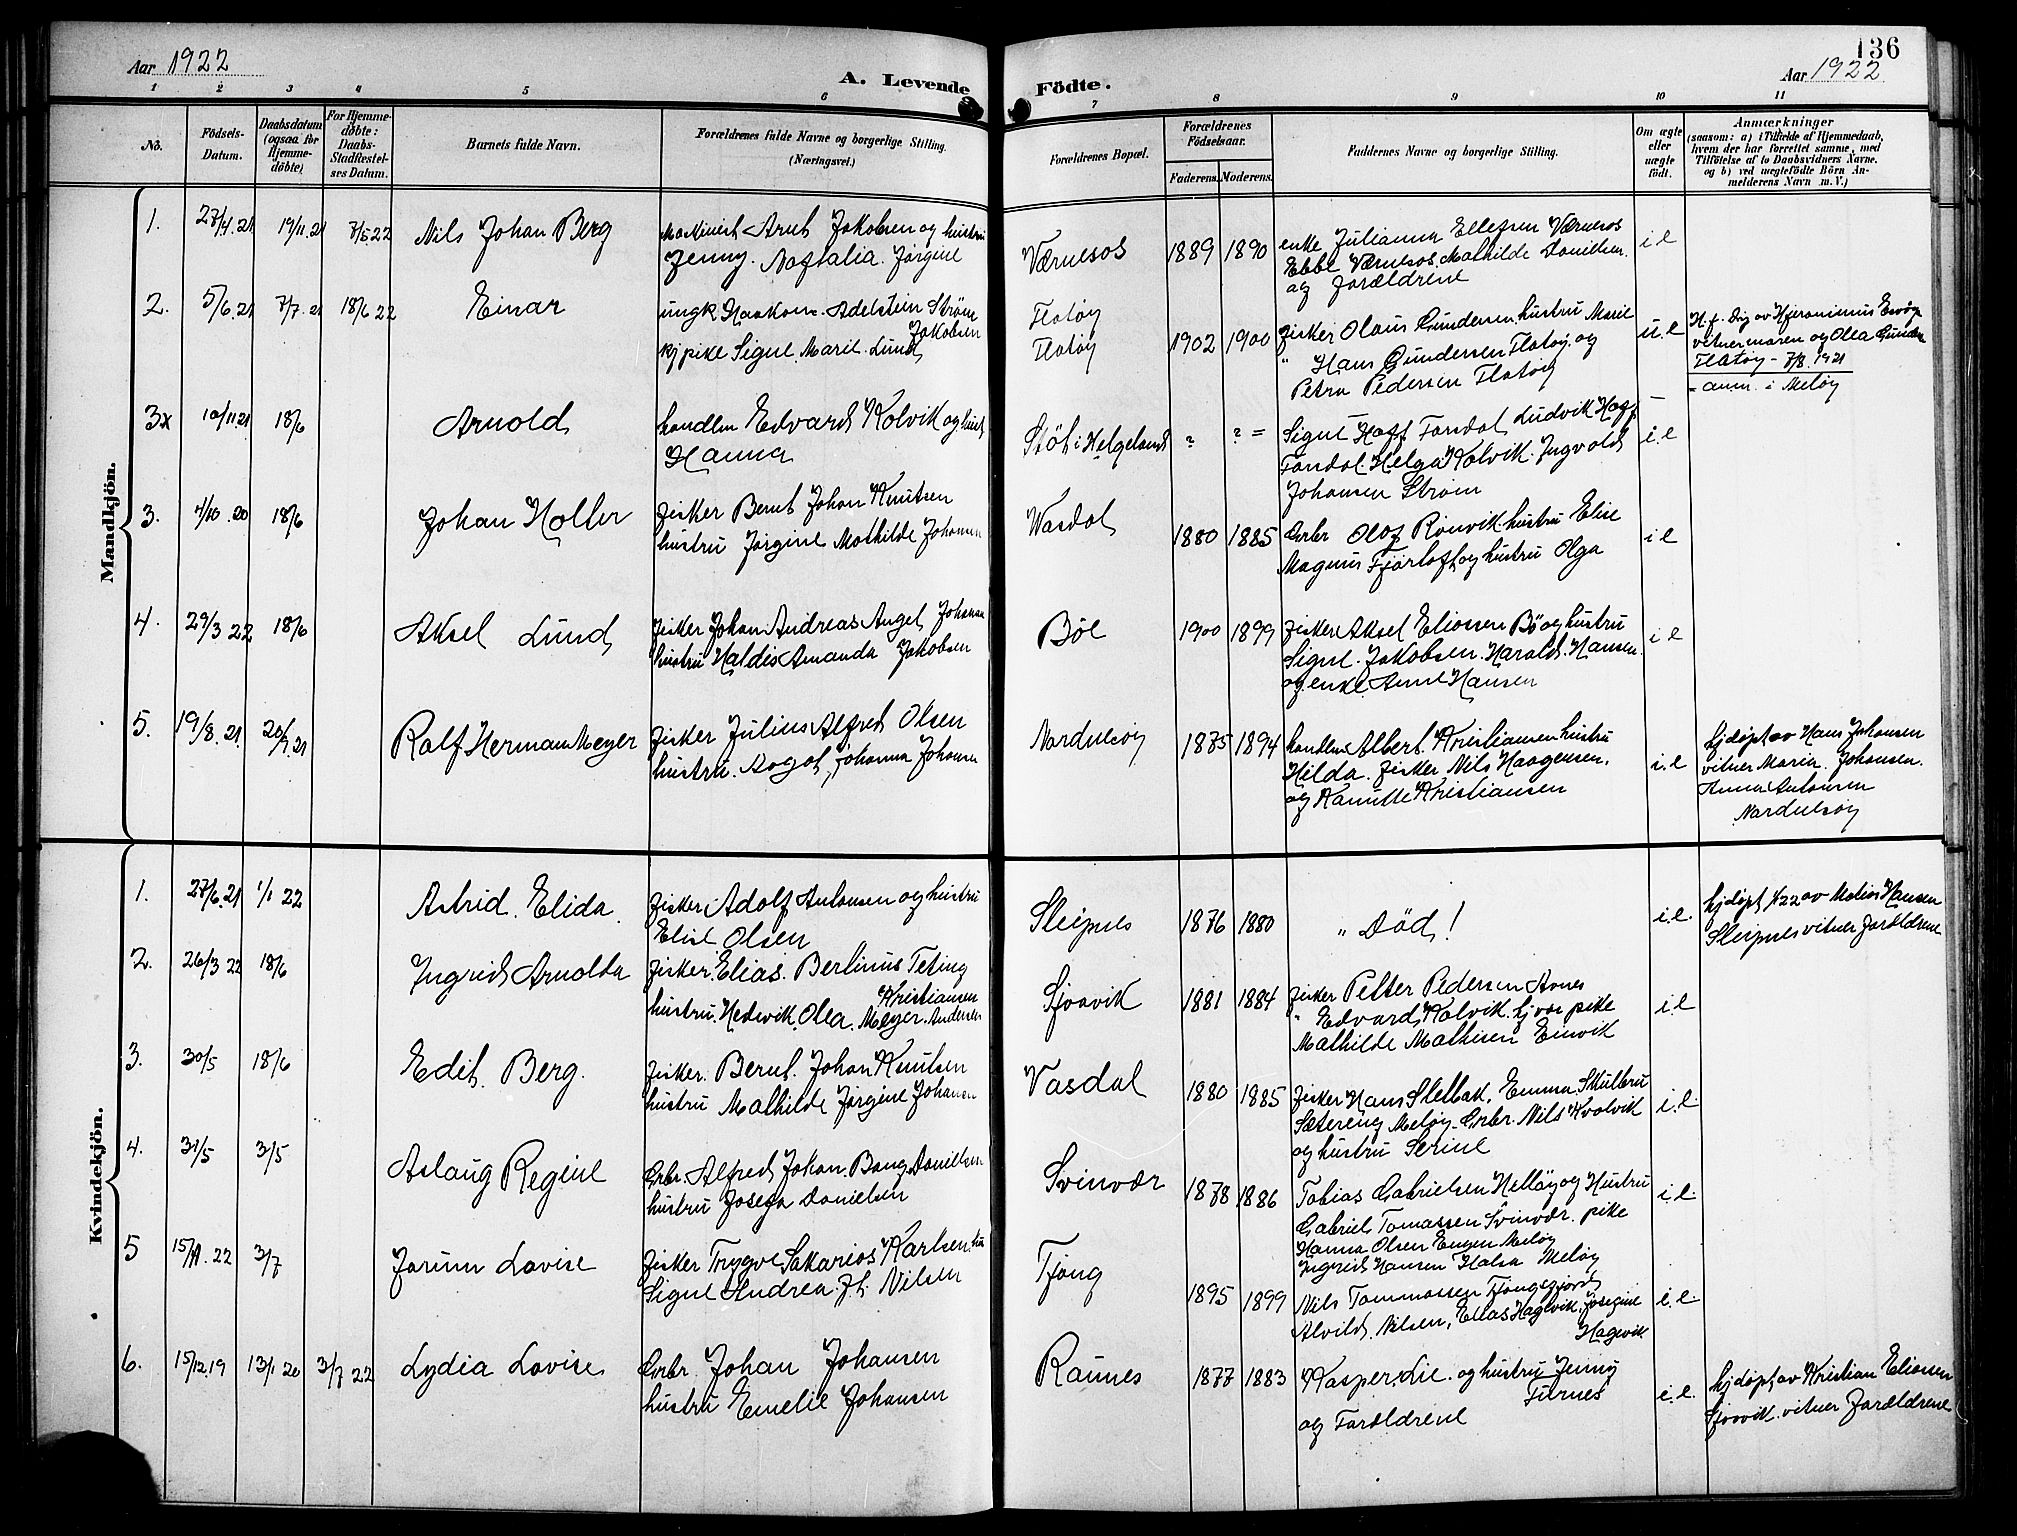 Aar 1922
A. Levende
1 2 3 4 5 6
No. Födsels-Datum. Daabsdatum (ogsaa for Hjemmedöbte) For Hjemmedöbte: Daabs-Stadfæstelses Datum. Barnets fulde Navn. Forældrenes fulde Navne og borgerlige Stilling. (Næringsvei.)
Mandkjön.
1. 27/4.21 19/11.21 7/5.22 Nils Johan Berg Maskinist Arnt Jakobsen og hustru
Jenny. Naftalia. Jørgine
2. 5/6.21 7/7.21 18/6 22 Einar ungk Haakon. Adelstein Strøm
Jakobsen
kj pike Signe. Marie. Lund
3x 10/11 21 18/6 Arnold handlm Edvard Kolvik og hust
Hanna
3. 4/10.20 18/6 Johan Holler fisker Bernt Johan Knutsen
hustru Jørgine Mathilde Johansen
4. 29/3 22 18/6 Aksel Lund fisker Johan Andreas Angel Johansen
hustru Haldis Amanda Jakobsen
5. 19/8.21 20/9.21 Ralf Herman Meyer fisker Julius Alfred Olsen
hustru. Aagot, Johanna Johansen
Kvindekjön.
1. 27/6.21 1/1 22 Astrid. Elida. fisker Adolf Antonsen og hustru
Elise Olsen
2. 26/3 22 18/6 Ingrid Arnolda fisker Elias. Berlinus Teting
Kristiansen
hustru. Hedvik. Olea. Meyer. Andersen
3. 30/5 18/6 Edit. Berg. fisker. Bernt. Johan Knutsen
hustru Mathilde Jørgine Johansen
4. 31/5 3/5 Aslaug Regine Grbr. Alfred Johan Bang Danielsen
hustru Josefa Danielsen
5 15/4.22 3/7 Jorunn Lovise fisker Trygve Sakarias Karlsen. hu
Signe Andrea. f. Nilsen
6. 15/12.19 13/1 20 3/7 22 Lydia Lovise Grbr Johan Johansen
hustru Emelie Johansen
136
Födte.
Aar 1922
7 8 9 10 11
Forældrenes Bopæl. Forældrenes Födselsaar. Faderens. Moderens. Faddernes Navne og borgerlige Stilling. Om ægte eller uægte födt. Anmærkninger (saasom: a) i Tilfælde af Hjemmedaab, hvem der har forrettet samme, med Tilföielse af to Daabsvidners Navne. og b) ved uægtefödte Börn Anmelderens Navn m. V.)
Værnesos 1889 1890 enke Julianna Ellefsen Værnesos i e
Ebbe Værnesos. Mathilde Danielsen.
og forældrene
Flatøy
Flatøy 1902 1900 fisker Olaus Gundersen. hustru Marie u. e
" Hans Gundersen Flatøy og
Petra Pedersen Flatøy
vitner maren og Olea
Flatøy - 7/8. 1921
= anm. i Meløy
Støt i Helgeland ? ? = Signe Hoff Forsdal Ludvik Hoff i. e
Forsdal. Helga Kolvik. Ingvald
Johansen Strøm
Vasdal 1880 1885 Grbr Olaf Rønvik hustru Elise i e
Magnus Fjørtoft og hustru Olga
Bøe 1900 1899 fisker Aksel Eliassen Bø og hustru i e
Signe. Jakobsen. Harald. Hansen.
og enke Anne Hansen
Nordnesøy 1875 1894 handlm Albert. Kristiansen hustru i. e
Hilda. fisker Nils Haagensen.
og Kamille Kristiansen
hjdøpt av Hans Johansen
vitner Maria. Johansen.
Anna Antonsen
Nordnesøy
Sleipnes 1876 1880 " Død! i. e. hjdøpt 1/1 22 av Matias Hansen
Sleipnes vitner forældrene
Sjoavik 1881 1884 fisker Petter Pedersen Aanes i e
" Edvard Kolvik. hjvær pike
Mathilde Mathisen Einvik
Vasdal 1880 1885 fisker Hans Sletbak. Emma Skulbru i. e.
Sætereng Meløy. Grbr. Nils Kvalvik
og hustru Serine
Svinvær 1878 1886 Tobias Gabrielsen Helløy og Hustru i. e.
Gabriel Tomassen Svinvær. pike
Hanna Olsen Engen Meløy
Ingrid Hansen Halsa Meløy
Tjong 1895 1899 Nils Tommassen Tjongsfjord i. e.
Alvild. Nilsen, Elias Hagvik. Josefine
Hagvik
Raunes 1877 1883 Kasper. Lie. og hustru Jenny i. e.
Furnes
og Forældrene
hjdøpt av Kristian Eliassen
Sjoavik. vitner Forældrene